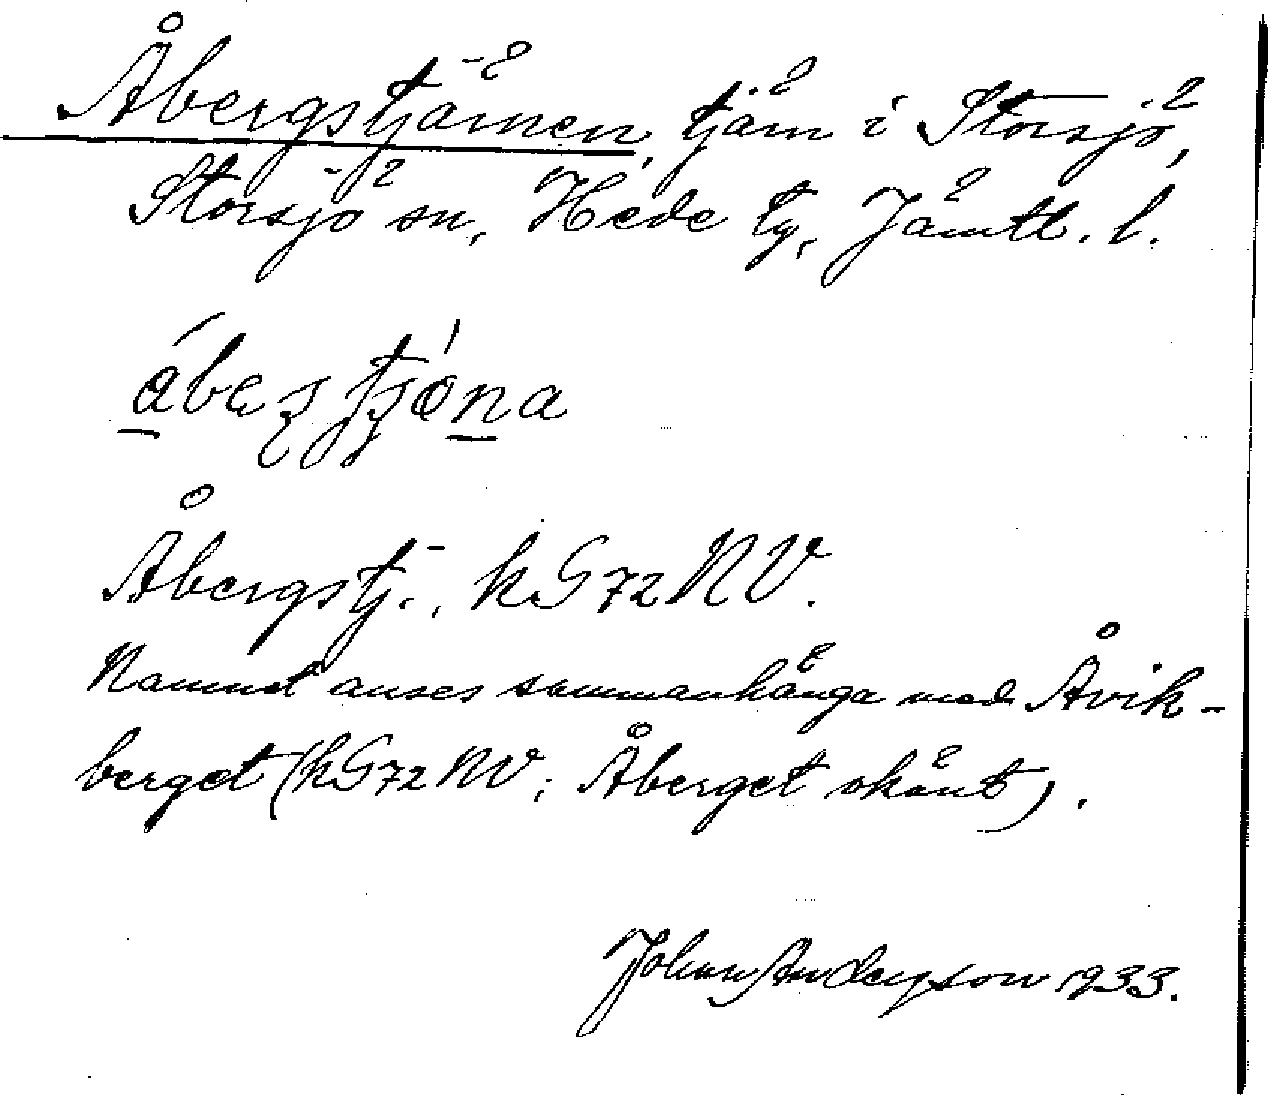 Åbergstjärnen, tjärn i Storsjö,
Storsjö sn, Hede tg, Jämtl. l.
Åbergstj., kG72NV.
Namnet anses sammanhänga med Åvik-
berget (kG72NV; Åberget okänt).
John Andersson 1933.